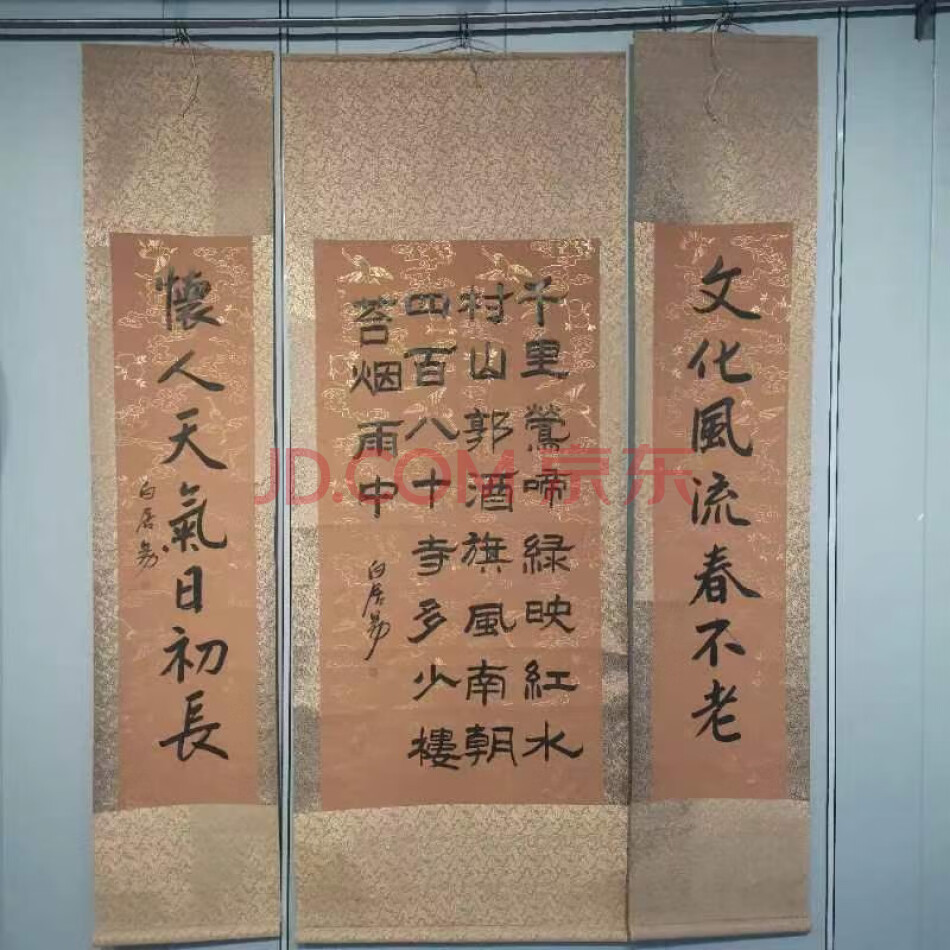 文化風流春不老
千里鶯啼緑映紅水
村山郭酒旗風南朝
四百八十寺多少樓
苔烟雨中
白居易
懷人天氣日初長
白居易
JD.COM 京东